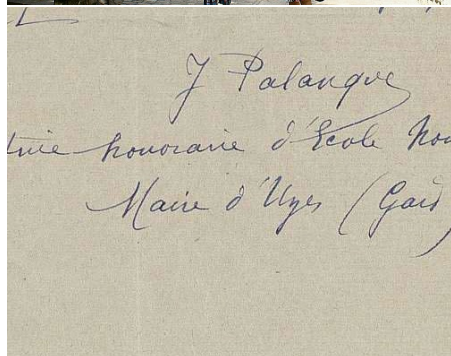 J Palanque
trice honoraire d'École Nor
Maire d'Uzès (Gard)